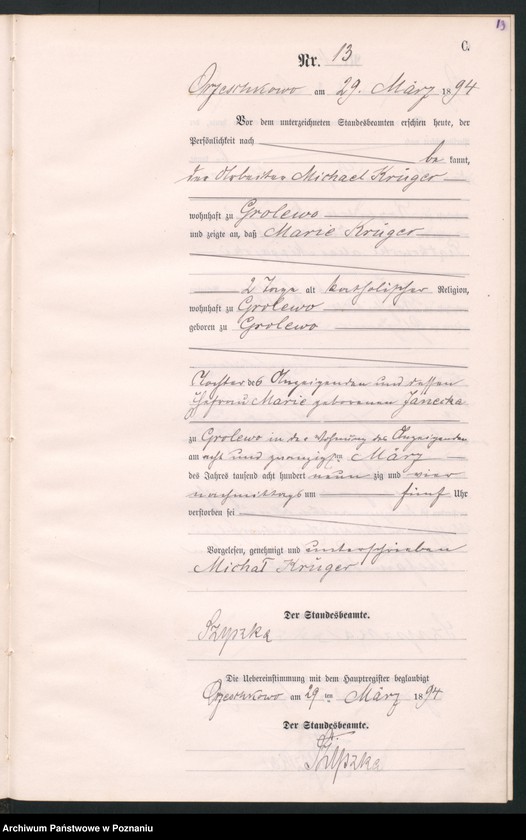 13
C.
Nr. 13
Orzeschkowo am 29. März 1894
Vor dem unterzeichneten Standesbeamten erschien heute, der
Persönlichkeit nach
be kannt,
der Arbeiter Michael Krüger
wohnhaft zu Grolewo
und zeigte an, daß Marie Krüger
2 Tage alt katholischer Religion,
wohnhaft zu Grolewo
geboren zu Grolewo
Tochter des Anzeigenden und dessen
Ehefrau Marie geborenen Janecka
zu Grolewo in der Wohnung des Anzeigenden
am acht und zwanzigsten März
des Jahres tausend acht hundert neun zig und vier
nachmittags um fünf Uhr
verstorben sei
Vorgelesen, genehmigt und unterschrieben
Michał Krüger
Der Standesbeamte.
Szyszka
Die Uebereinstimmung mit dem Hauptregister beglaubigt
Orzeschkowo am 29 ten März 1894
Der Standesbeamte.
Szyszka
Archiwum Państwowe w Poznaniu